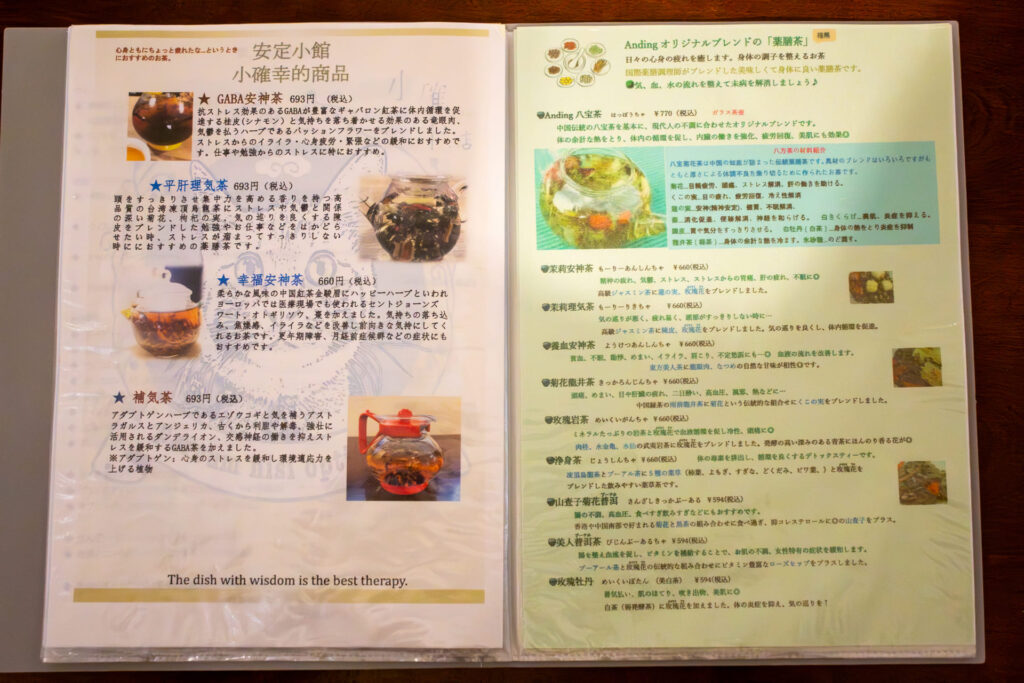 心身ともにちょっと疲れたな…というとき
におすすめのお茶。
安定小館
小確幸的商品
★ GABA安神茶 693円 (税込)
抗ストレス効果のあるGABAが豊富なギャバロン紅茶に体内循環を促
進する桂皮(シナモン)と気持ちを落ち着かせる効果のある竜眼肉、
気鬱を払うハーブであるパッションフラワーをブレンドしました。
ストレスからのイライラ・心身疲労・緊張などの緩和におすすめで
す。仕事や勉強からのストレスに特におすすめ。
★平肝理気茶 693円(税込)
頭をすっきりさせ集中力を高める香りを持つ高
品質の台湾凍頂烏龍茶にストレスや気鬱と関係
の深い菊花、枸杞の実、気の巡りを良くする陳
皮をブレンドした勉強やお仕事などをはかどら
せたい時、ストレスが溜まってすっきりしない
時ににおすすめの薬膳茶です。
★ 幸福安神茶 660円(税込)
柔らかな風味の中国紅茶金駿眉にハッピーハーブといわれ
ヨーロッパでは医療現場でも使われるセントジョーンズ
ワート、オトギリソウ、棗を加えました。気持ちの落ち込
み、焦燥感、イライラなどを改善し前向きな気持にしてく
れるお茶です。更年期障害、月経前症候群などの症状にも
おすすめです。
★ 補気茶 693円(税込)
アダプトゲンハーブであるエゾウコギと気を補うアスト
ラガルスとアンジェリカ、古くから利胆や解毒、強壮に
活用されるダンデライオン、交感神経の働きを抑えスト
レスを緩和するGABA茶を加えました。
※アダプトゲン：心身のストレスを緩和し環境適応力を
上げる植物
The dish with wisdom is the best therapy.
Anding オリジナルブレンドの「薬膳茶」
日々の心身の疲れを癒します。身体の調子を整えるお茶
国際薬膳調理師がブレンドした美味しくて身体に良い薬膳茶です。
気、血、水の流れを整えて未病を解消しましょう♪
Anding 八宝茶 はっぽうちゃ ￥770 (税込) ガラス茶壺
中国伝統の八宝茶を基本に、現代人の不調に合わせたオリジナルブレンドです。
体の余計な熱をとり、体内の循環を促し、内臓の働きを強化、疲労回復、美肌にも効果◎
八宝菊花茶は中国の知恵が詰まった伝統薬膳茶です。具材のブレンドはいろいろですがも
ともと暑さによる体調不良を乗り切るために作られたお茶です。
菊花…目精疲労、頭痛、ストレス解消、肝の働きを助ける。
くこの実…目の疲れ、疲労回復、冷え性解消
消化促進、便秘解消、神経を和らげる。 白きくらげ…美肌、炎症を抑える。
陳皮…胃や気分をすっきりさせる。 白牡丹(白茶)…身体の熱をとり炎症を抑制
龍井茶(緑茶)…身体の余計な熱を冷ます。氷砂糖…のど潤す。
茉莉安神茶 もーりーあんしんちゃ ￥660(税込)
精神の疲れ、気鬱、ストレス、ストレスからの胃痛、肝の疲れ、不眠に◎
高級ジャスミン茶に蓮の実、玫瑰花をブレンドしました。
茉莉理気茶 もーりーりきちゃ ￥660(税込)
気の巡りが悪く、疲れ易く、頭部がすっきりしない時に…
高級ジャスミン茶に陳皮、玫瑰花をブレンドしました。気の巡りを良くし、体内循環を促進。
養血安神茶 ようけつあんしんちゃ ￥660(税込)
貧血、不眠、動悸、めまい、イライラ、肩こり、不定愁訴にも…◎ 血液の流れを改善します。
東方美人茶に龍眼肉、なつめの自然な甘味が相性◎です。
菊花龍井茶 きっかろんじんちゃ ￥660(税込)
頭痛、めまい、目や肝臓の疲れ、二日酔い、高血圧、風邪、熱などに…
中国緑茶の雨前龍井茶に菊花という伝統的な組合せにくこの実をブレンドしました。
玫瑰岩茶 めいくいがんちゃ ￥660(税込)
ミネラルたっぷりの岩茶と玫瑰花で血液循環を促し冷性、頭痛に◎
肉桂、水金亀、水仙の武夷岩茶に玫瑰花をブレンドしました。発酵の高い深みのある青茶にほんのり香る花が◎
浄身茶 じょうしんちゃ ￥660(税込) 体の毒素を排出し、循環を良くするデトックスティーです。
凍頂烏龍茶とプーアル茶に5種の薬草(柿葉、よもぎ、すぎな、どくだみ、ビワ葉、)と玫瑰花を
ブレンドした飲みやすい薬草茶です。
山査子菊花普洱 さんざしきっかぷーある ￥594(税込)
腸の不調、高血圧、食べすぎ飲みすぎなどにもおすすめです。
香港や中国南部で好まれる菊花と黒茶の組み合わせに食べ過ぎ、抑コレステロールに◎の山査子をプラス。
美人普洱茶 びじんぷーあるちゃ ￥594(税込)
腸を整え血流を促し、ビタミンを補給することで、お肌の不調、女性特有の症状を緩和します。
プーアール茶と玫瑰花の伝統的な組み合わせにビタミン豊富なローズヒップをプラスしました。
玫瑰牡丹 めいくいぼたん (美白茶) ￥594(税込)
暑気払い、肌のほてり、吹き出物、美肌に◎
白茶(弱発酵茶)に玫瑰花を加えました。体の炎症を抑え、気の巡りを↑